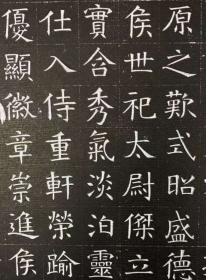 原之歎式昭盛德
侯世祀太尉傑立
實合秀氣淡泊靈
仕入侍重軒榮踰
優顯徽章崇進侯